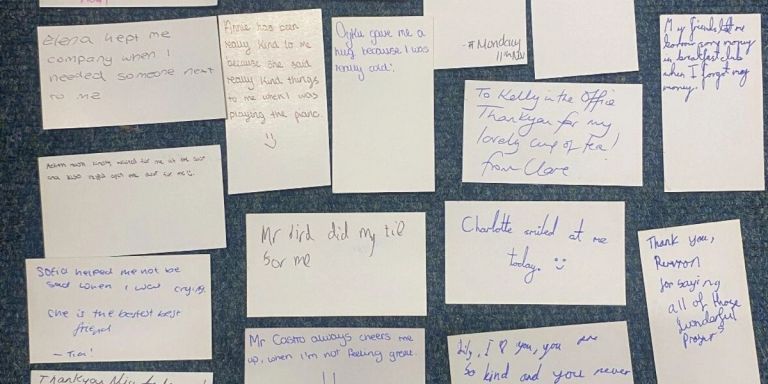 Elena kept me
company when I
needed someone next
to me
Annie has been
really kind to me
because she said
really kind things
to me when I was
playing the piano.
:)
gave me a
hug because I was
really cold.
- #Monday
11th Nov
To Kelly in the Office
Thankyou for my
lovely cup of tea!
from Clare
My friends let me
borrow some money
in breakfast club
when I forgot my
money.
kindly waited for me at the
Mr bird did my tie
for me
Charlotte smiled at me
today. :)
Sofia helped me not be
sad when I was crying.
she is the bestest best
friend
Thank you,
for saying
all of those
wonderful
Prayers
Mr Castro always cheers me
up, when I'm not feeling great.
Lily, I ♡ you, you are
so kind and you never
Thankyou